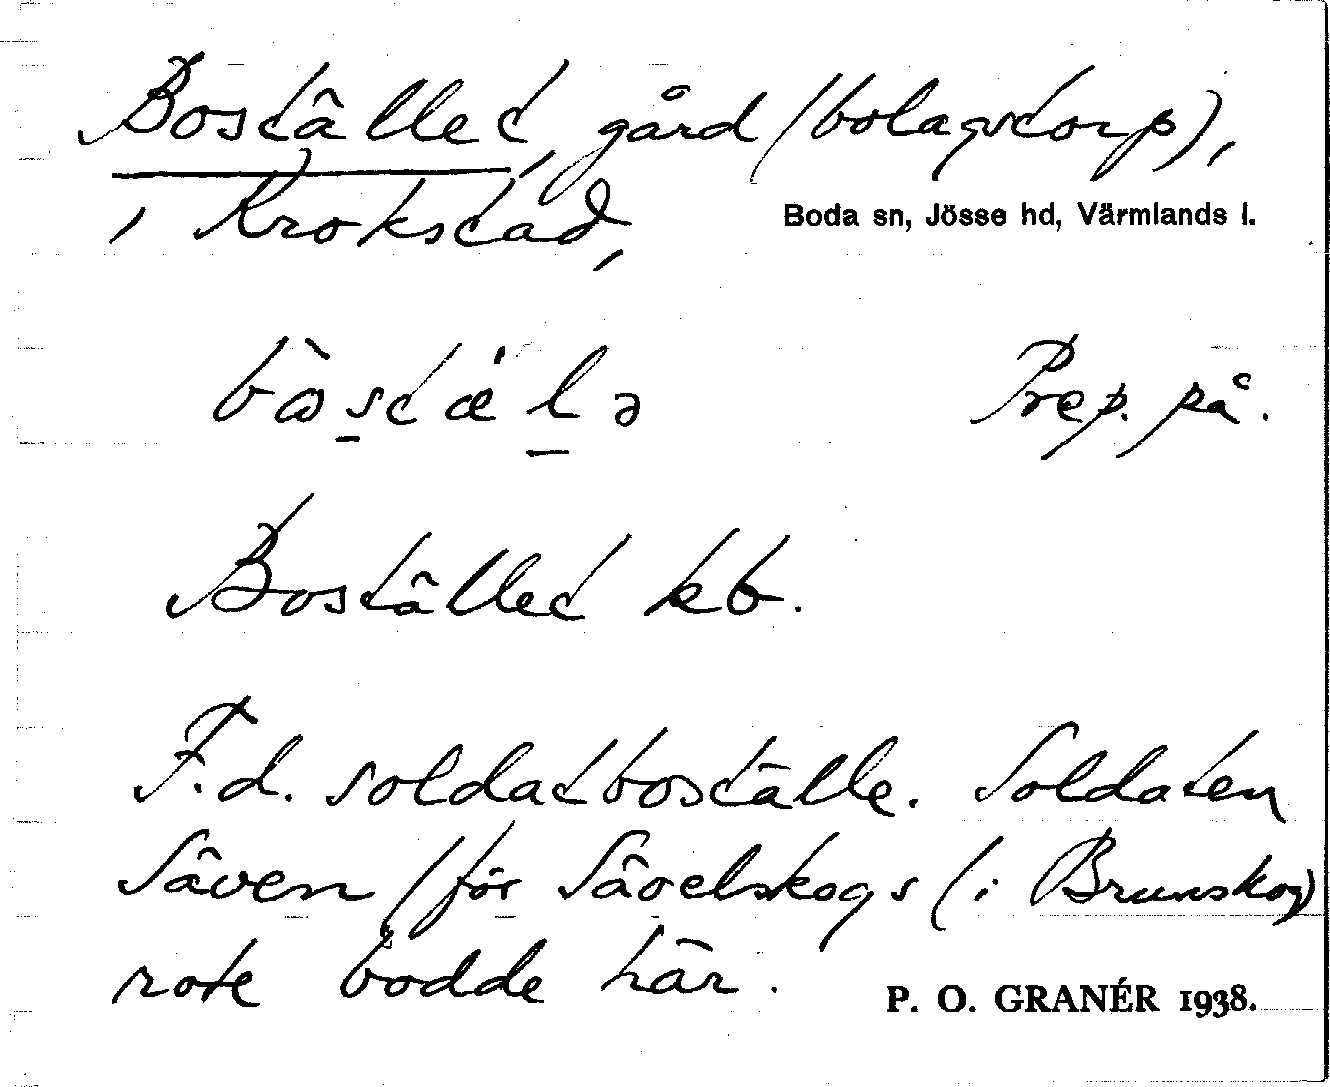 Bostället, gård (bolagstorp),
i Krokstad,
Boda sn, Jösse hd, Värmlands l.
Prep. på.
Bostället kb.
F.d. soldatboställe. Soldaten
Säven (för Sävelskogs (i Brunskog)
rote bodde här.
P. O. GRANÉR 1938.